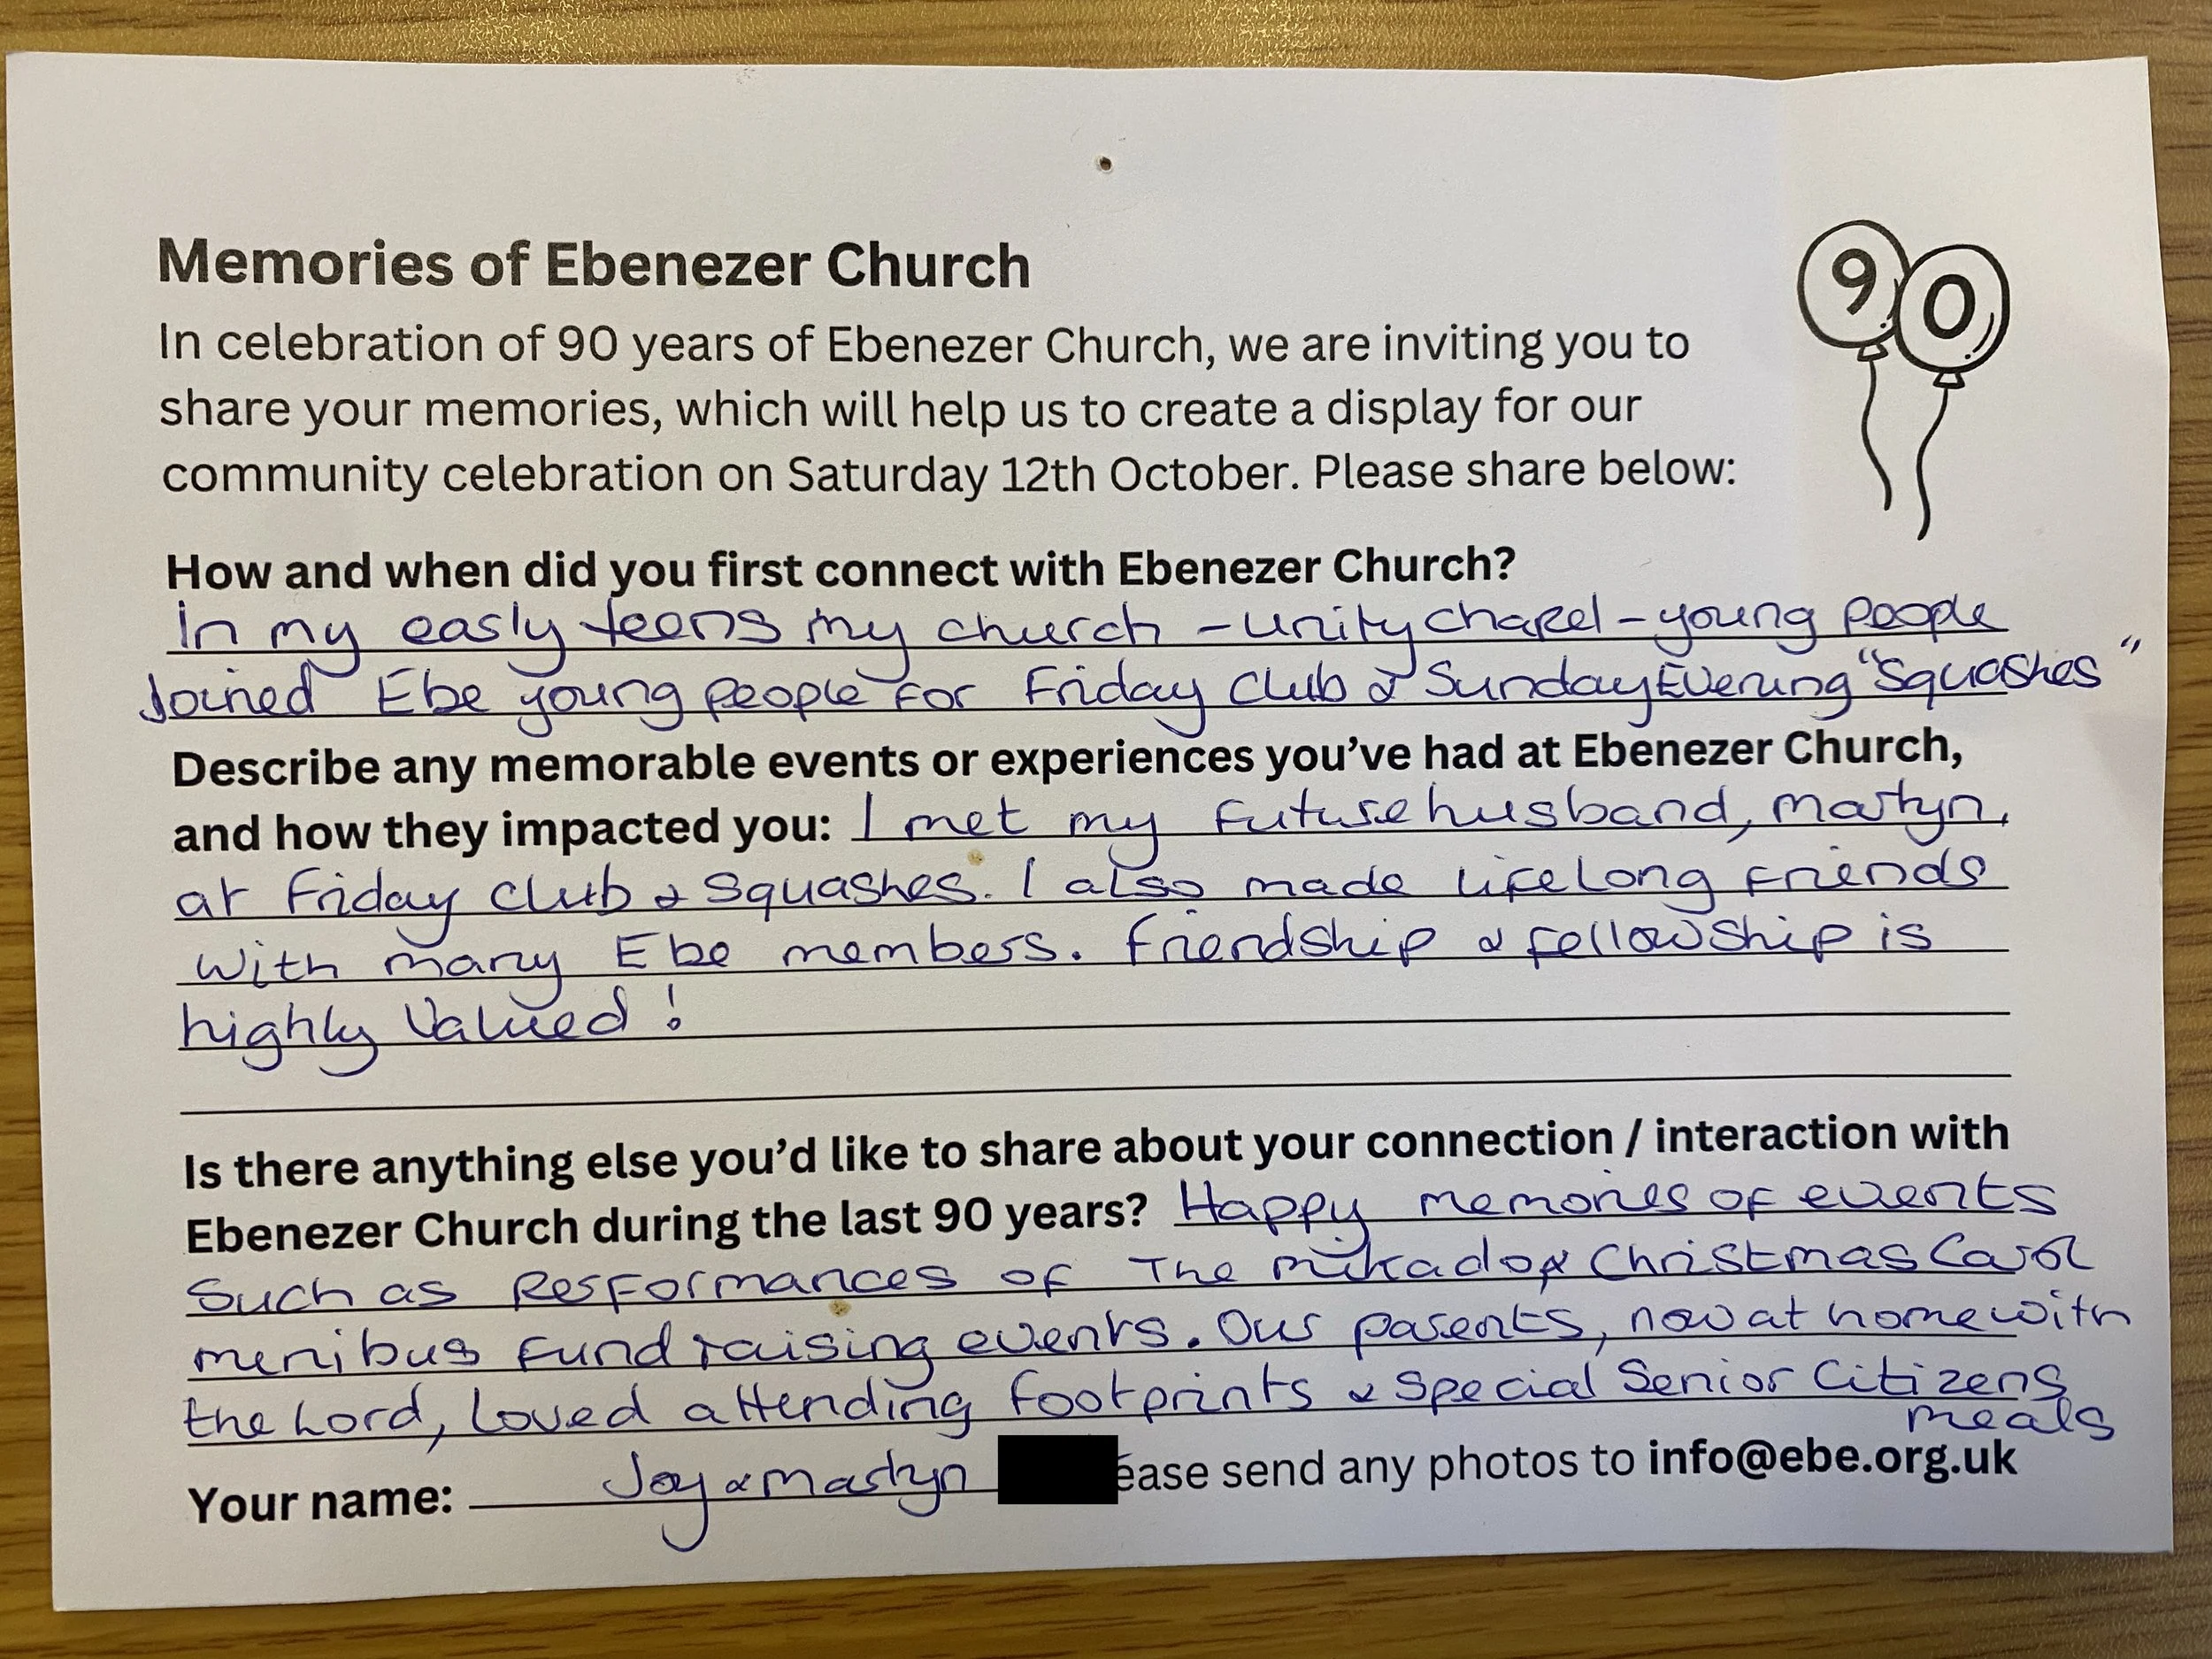 Memories of Ebenezer Church
90
In celebration of 90 years of Ebenezer Church, we are inviting you to
share your memories, which will help us to create a display for our
community celebration on Saturday 12th October. Please share below:
How and when did you first connect with Ebenezer Church?
In my early teens my church - Unity chapel - young people
joined Ebe young people for Friday Club & Sunday Evening "Squashes"
Describe any memorable events or experiences you've had at Ebenezer Church,
and how they impacted you: I met my future husband, Martyn,
at Friday Club & Squashes. I also made lifelong friends
with many Ebe members. Friendship & fellowship is
highly valued!
Is there anything else you'd like to share about your connection / interaction with
Ebenezer Church during the last 90 years? Happy memories of events
such as performances of The Mikado & Christmas Carol
minibus fund raising events. Our parents, now at home with
the Lord, loved attending Footprints & Special Senior Citizens
meals
Your name: Joy & Martyn ease send any photos to info@ebe.org.uk